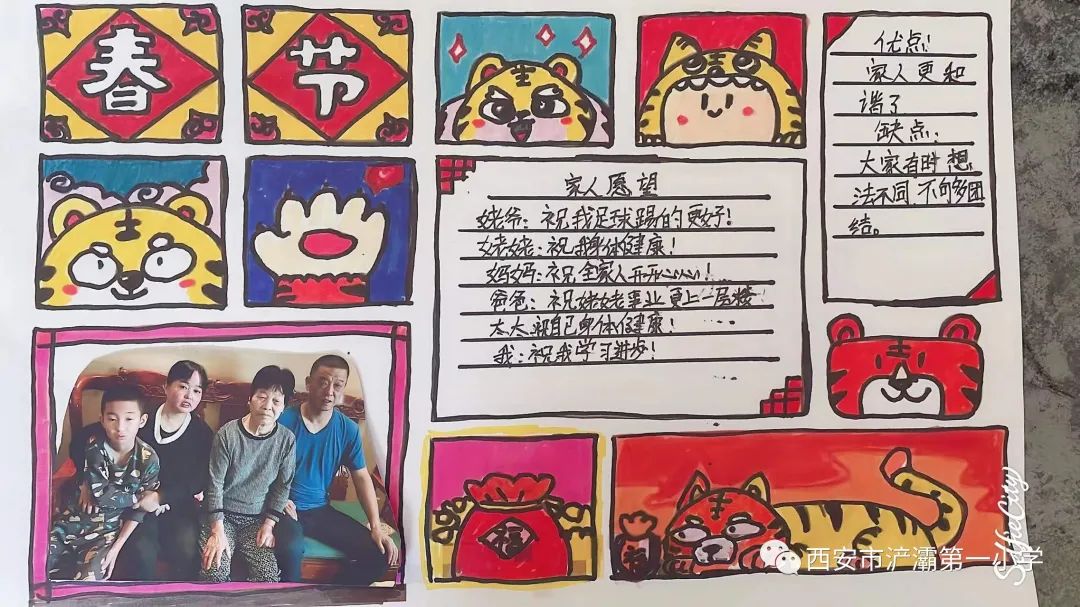 春
节
优点:
家人更和
谐了
缺点.
大家有时想
法不同不够多团
结。
家人愿望
姥爷:祝我足球踢的更好!
姥姥:祝我身体健康!
妈妈:祝全家人开开心心!
爸爸:祝姥姥事业更上一层楼!
太太:祝自己身体健康!
我:祝我学习进步!
福
西安市浐灞第一小学
SelfieCity